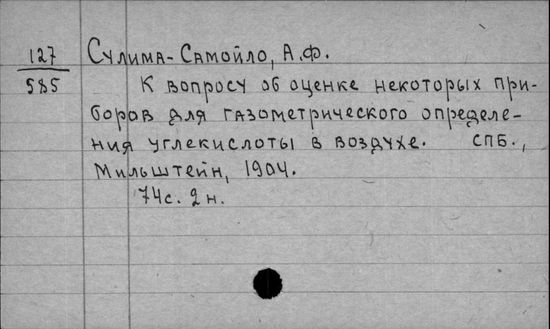 127
585
Сулима-Самойло, А.Ф.
К вопросу об оценке некоторых при-
боров для газометрического определе-
ния углекислоты в воздухе. СПБ.,
Мильштейн, 1904.
74 с. 2 н.